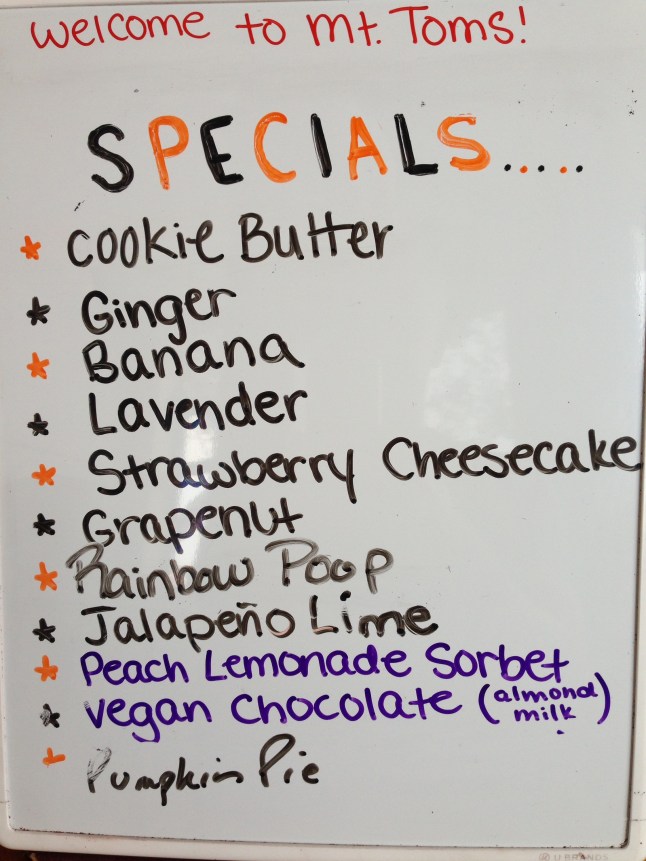 welcome to mt. Toms!
SPECIALS.....
* Cookie Butter
* Ginger
* Banana
* Lavender
* Strawberry Cheesecake
* Grapenut
* Rainbow Poop
* Jalapeño Lime
* Peach Lemonade Sorbet
* vegan chocolate (almond milk)
* Pumpkin Pie
U BRANDS